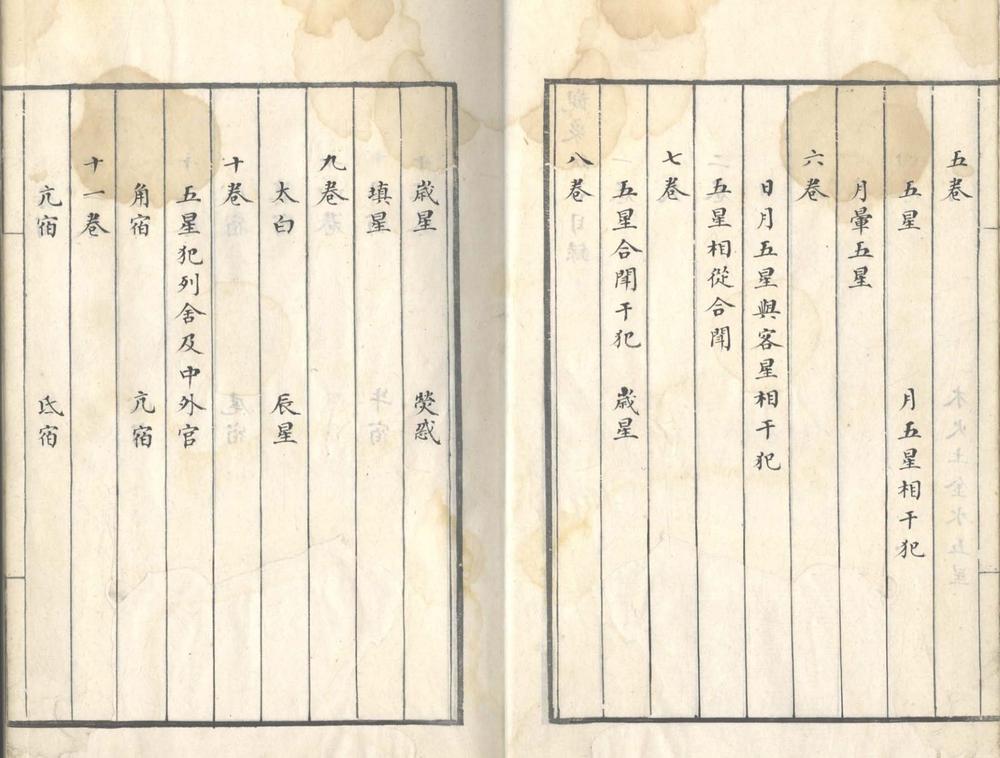 五卷
五星　月五星相干犯
月暈五星
六卷
日月五星與客星相干犯
五星相從合鬥
七卷
五星合鬥干犯　歲星
八卷
歲星　熒惑
填星
九卷
太白　辰星
十卷
五星犯列舍及中外官
角宿　亢宿
十一卷
亢宿　氐宿